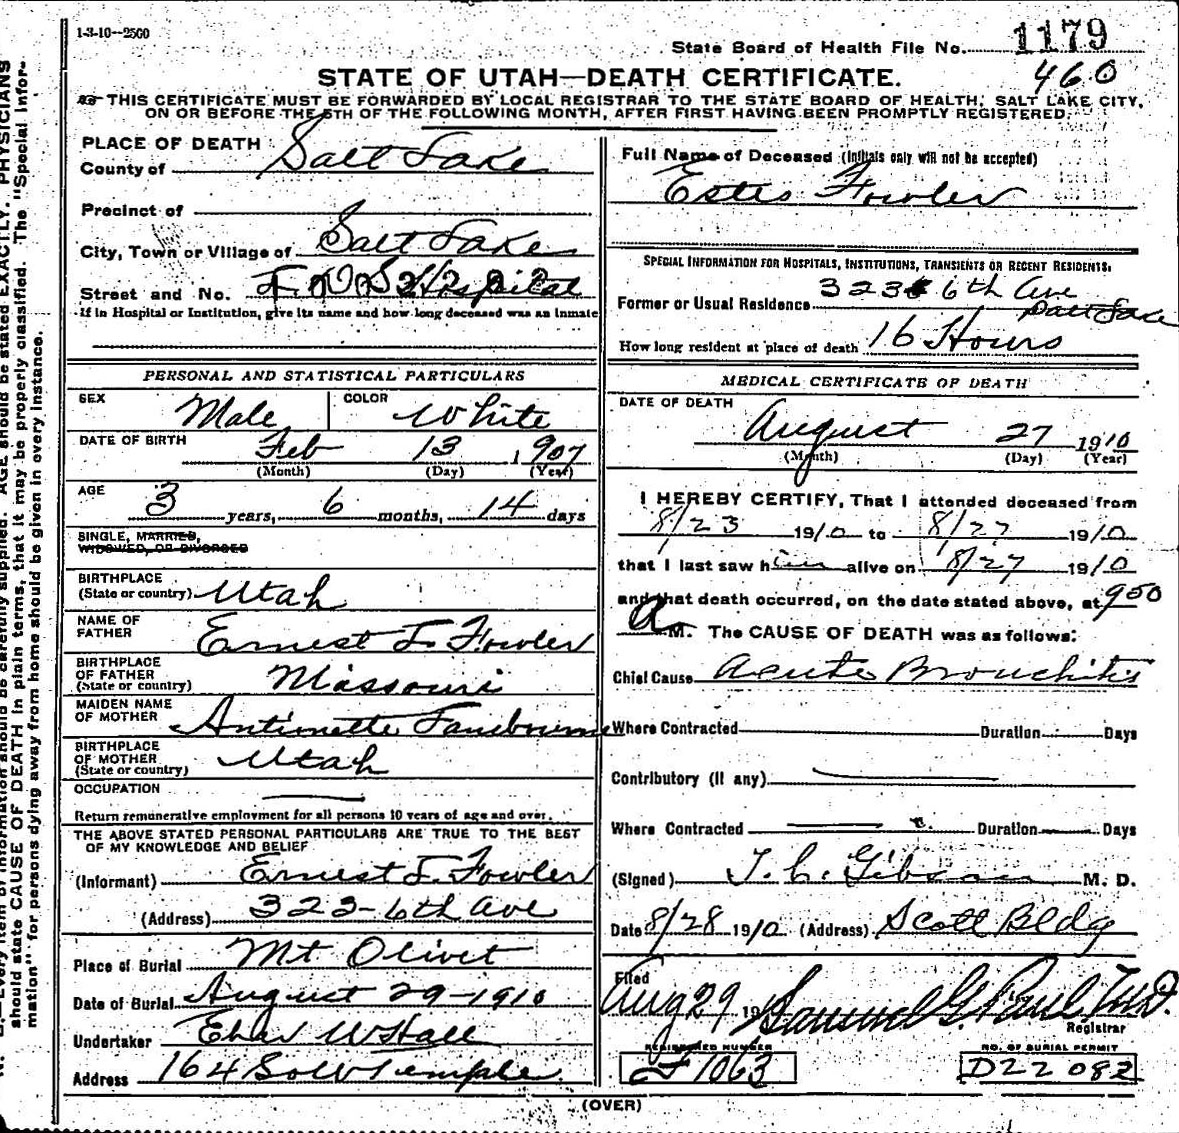 1-3-10--2500
State Board of Health File No. 1179
460
STATE OF UTAH—DEATH CERTIFICATE.
THIS CERTIFICATE MUST BE FORWARDED BY LOCAL REGISTRAR TO THE STATE BOARD OF HEALTH, SALT LAKE CITY,
ON OR BEFORE THE 5TH OF THE FOLLOWING MONTH, AFTER FIRST HAVING BEEN PROMPTLY REGISTERED.
PLACE OF DEATH
County of Salt Lake
Precinct of
City, Town or Village of Salt Lake
Street and No. L.D.S. Hospital
If in Hospital or Institution, give its name and how long deceased was an inmate
PERSONAL AND STATISTICAL PARTICULARS
SEX Male COLOR White
DATE OF BIRTH Feb 13, 1907
(Month) (Day) (Year)
AGE
3 years, 6 months, 14 days
SINGLE, MARRIED,
WIDOWED, OR DIVORCED
BIRTHPLACE
(State or country) Utah
NAME OF
FATHER Ernest L. Fowler
BIRTHPLACE
OF FATHER
(State or country) Missouri
MAIDEN NAME
OF MOTHER Antionette
BIRTHPLACE
OF MOTHER
(State or country) Utah
OCCUPATION
Return remunerative employment for all persons 10 years of age and over.
THE ABOVE STATED PERSONAL PARTICULARS ARE TRUE TO THE BEST
OF MY KNOWLEDGE AND BELIEF
(Informant) Ernest L. Fowler
(Address) 323-6th Ave
Place of Burial Mt Olivet
Date of Burial August 29-1910
Undertaker Eber W Hall
Address 164 So W Temple
Full Name of Deceased (Initials only will not be accepted)
Estes Fowler
SPECIAL INFORMATION FOR HOSPITALS, INSTITUTIONS, TRANSIENTS OR RECENT RESIDENTS.
Former or Usual Residence 323 6th Ave
Salt Lake
How long resident at place of death 16 Hours
MEDICAL CERTIFICATE OF DEATH
DATE OF DEATH
August 27 1910
(Month) (Day) (Year)
I HEREBY CERTIFY, That I attended deceased from
8/23 1910 to 8/27 1910
that I last saw him alive on 8/27 1910
and that death occurred, on the date stated above, at 9:50
A M. The CAUSE OF DEATH was as follows:
Chief Cause Acute Bronchitis
Where Contracted Duration Days
Contributory (if any)
Where Contracted Duration Days
(Signed) T. C. Gibson M. D.
Date 8/28 1910 (Address) Scott Bldg
Filed
Aug 29 19 Samuel G. Paul M.D.
Registrar
REGISTERED NUMBER NO. OF BURIAL PERMIT
1063 D22 082
(OVER)
should state CAUSE OF DEATH in plain terms, that it may be properly classified. The "Special Infor-
mation" for persons dying away from home should be given in every instance.